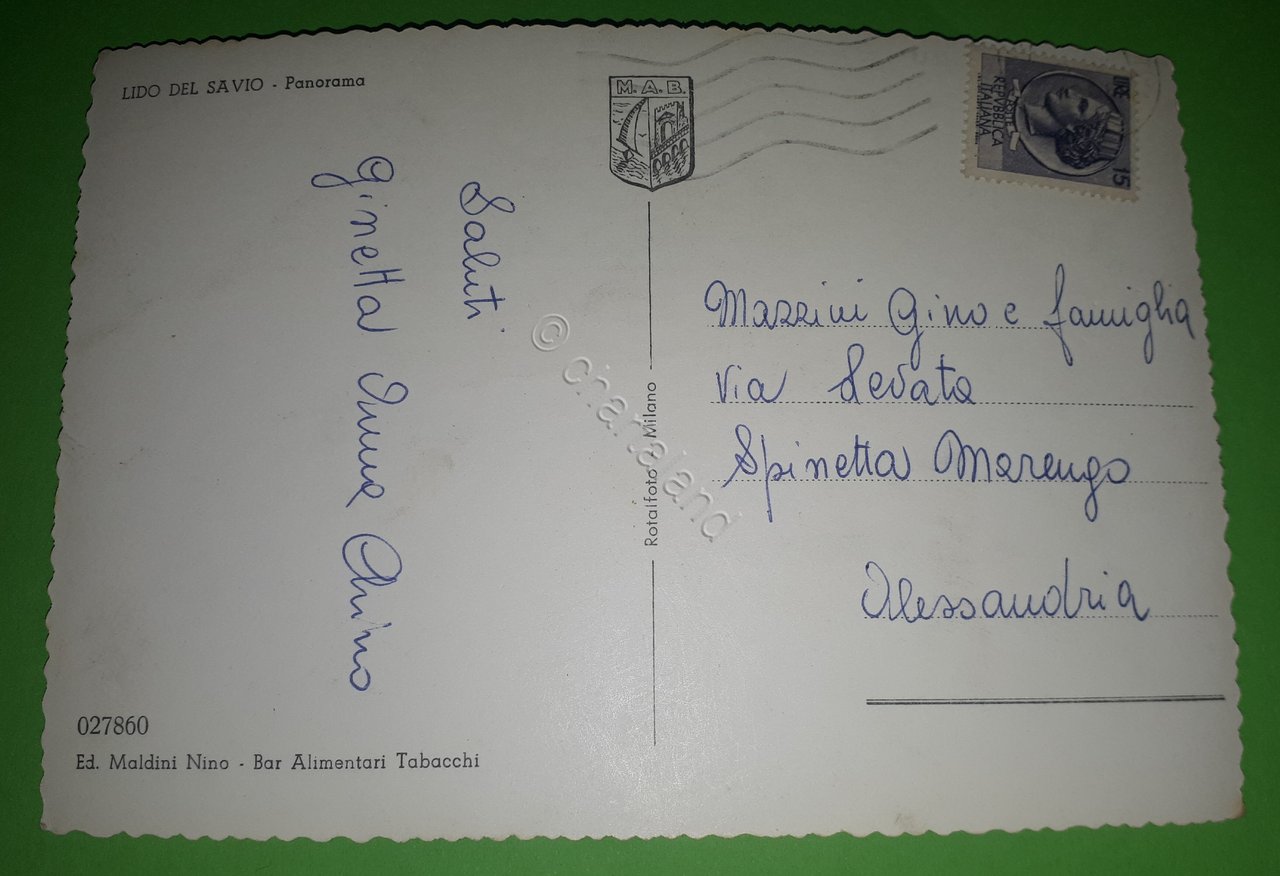 LIDO DEL SAVIO - Panorama
M. A. B.
LIRE 15
POSTE
REPVBBLICA
ITALIANA
Saluti
Ginetta Anna
Mazzini Gino e famiglia
Via Levata
Spinetta Marengo
Alessandria
Rotalfoto - Milano
© chartaland
027860
Ed. Maldini Nino - Bar Alimentari Tabacchi